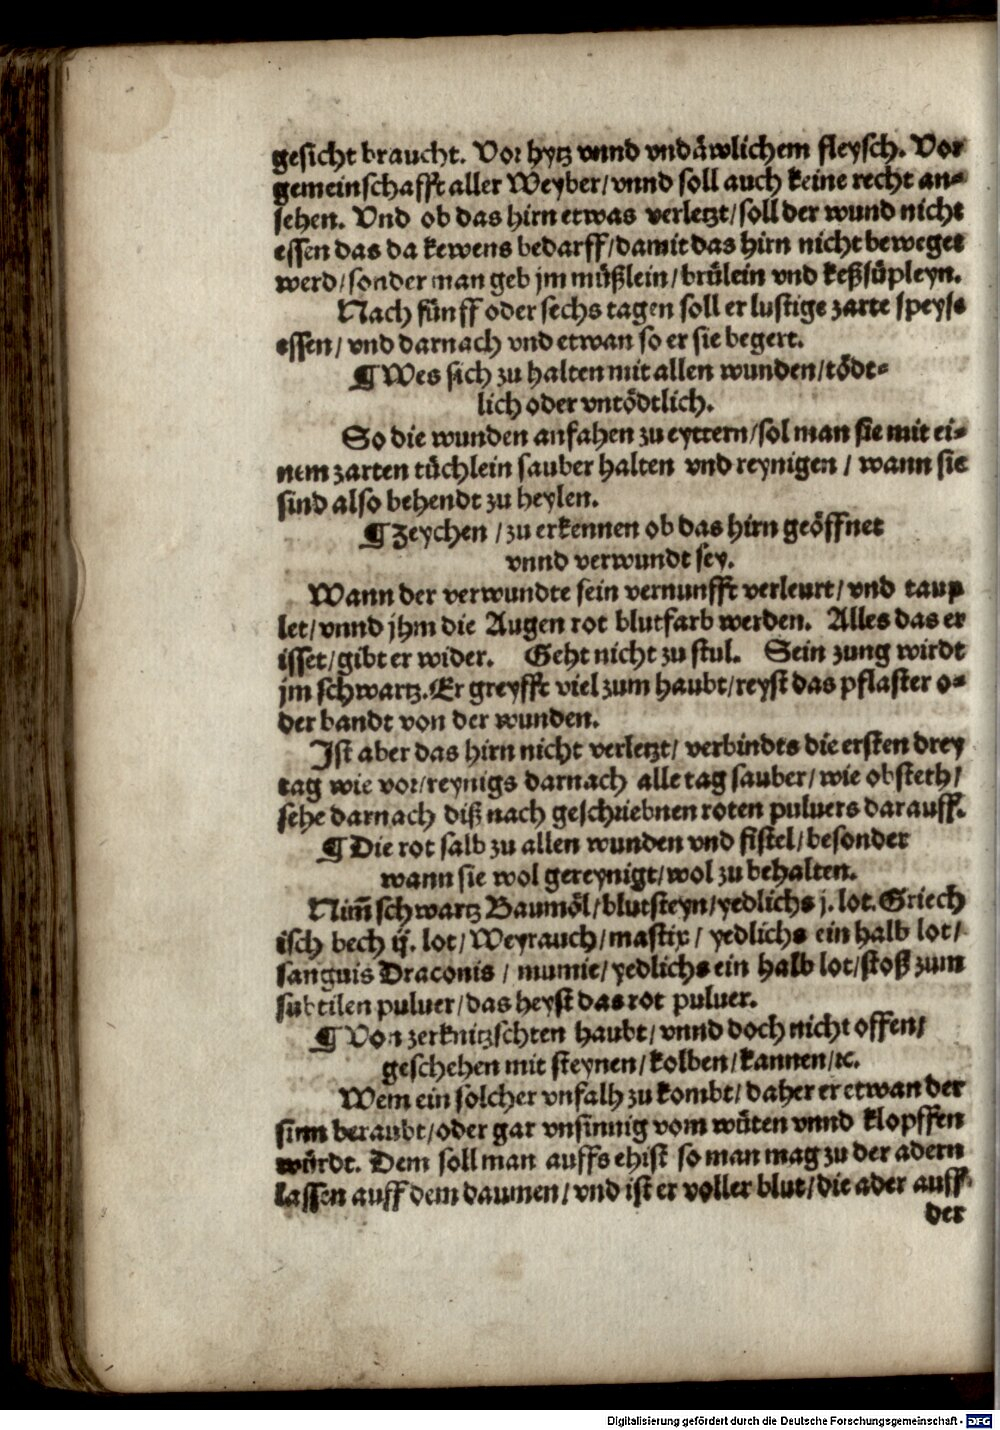 gesicht braucht. Vor hytz vnnd vndåwlichem fleysch. Vor
gemeinschafft aller Weyber/ vnnd soll auch keine recht an⸗
sehen. Vnd ob das hirn etwas verletzt/ soll der wund nicht
essen das da kewens bedarff/ damit das hirn nicht beweget
werd/ sonder man geb jm müßlein/ brülein vnd keßsüpleyn.
Nach fünff oder sechs tagen soll er lustige zarte speyse
essen/ vnd darnach vnd etwan so er sie begert.
¶ Wes sich zu halten mit allen wunden/ tödt⸗
lich oder vntödtlich.
So die wunden anfahen zu eyttern/ sol man sie mit ei⸗
nem zarten tüchlein sauber halten vnd reynigen / wann sie
sind also behendt zu heylen.
¶ Zeychen / zu erkennen ob das hirn geöffnet
vnnd verwundt sey.
Wann der verwundte sein vernunfft verleurt/ vnd taup
let/ vnnd jhm die Augen rot blutfarb werden. Alles das er
isset/ gibt er wider. Geht nicht zu stul. Sein zung wirdt
jm schwartz. Er greyfft viel zum haubt/ reyst das pflaster o⸗
der bandt von der wunden.
Ist aber das hirn nicht verletzt/ verbindts die ersten drey
tag wie vor/ reynigs darnach alle tag sauber/ wie obsteth/
sehe darnach diß nach geschriebnen roten puluers darauff.
¶ Die rot salb zu allen wunden vnd fistel/ besonder
wann sie wol gereynigt/ wol zu behalten.
Nim̃ schwartz Baumöl/ blutsteyn/ yedlichs j. lot. Griech
isch bech ij. lot/ Weyrauch/ mastix/ yedlichs ein halb lot/
sanguis Draconis / mumie/ yedlichs ein halb lot/ stoß zum
subtilen puluer/ das heyst das rot puluer.
¶ Von zerknitzschten haubt/ vnnd doch nicht offen/
geschehen mit steynen/ kolben/ kannen/ ꝛc.
Wem ein solcher vnfalh zu kombt/ daher er etwan der
sinn beraubt/ oder gar vnsinnig vom wüten vnnd klopffen
würdt. Dem soll man auffs ehist so man mag zu der adern
lassen auff dem daumen/ vnd ist er voller blut/ die ader auff
der
Digitalisierung gefördert durch die Deutsche Forschungsgemeinschaft - DFG